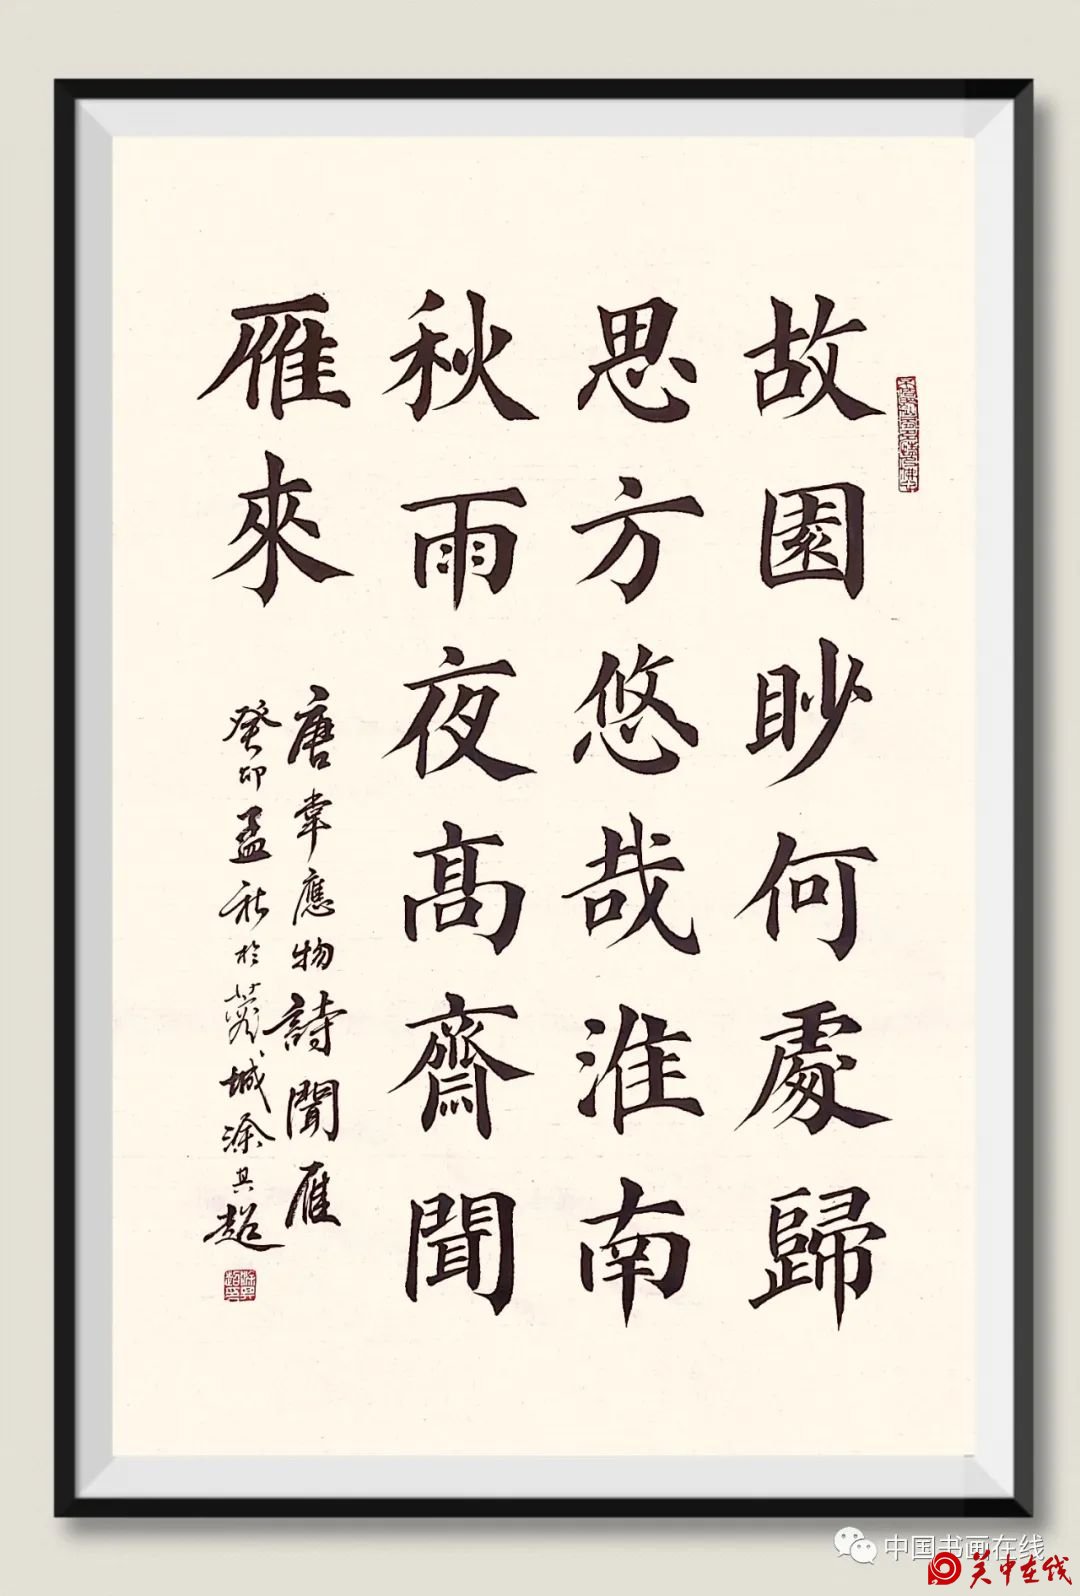 故園眇何處歸
思方悠哉淮南
秋雨夜高齋聞
雁來
唐韋應物詩聞雁
癸卯孟秋於蓉城涂其超
中国书画在线
关中在线